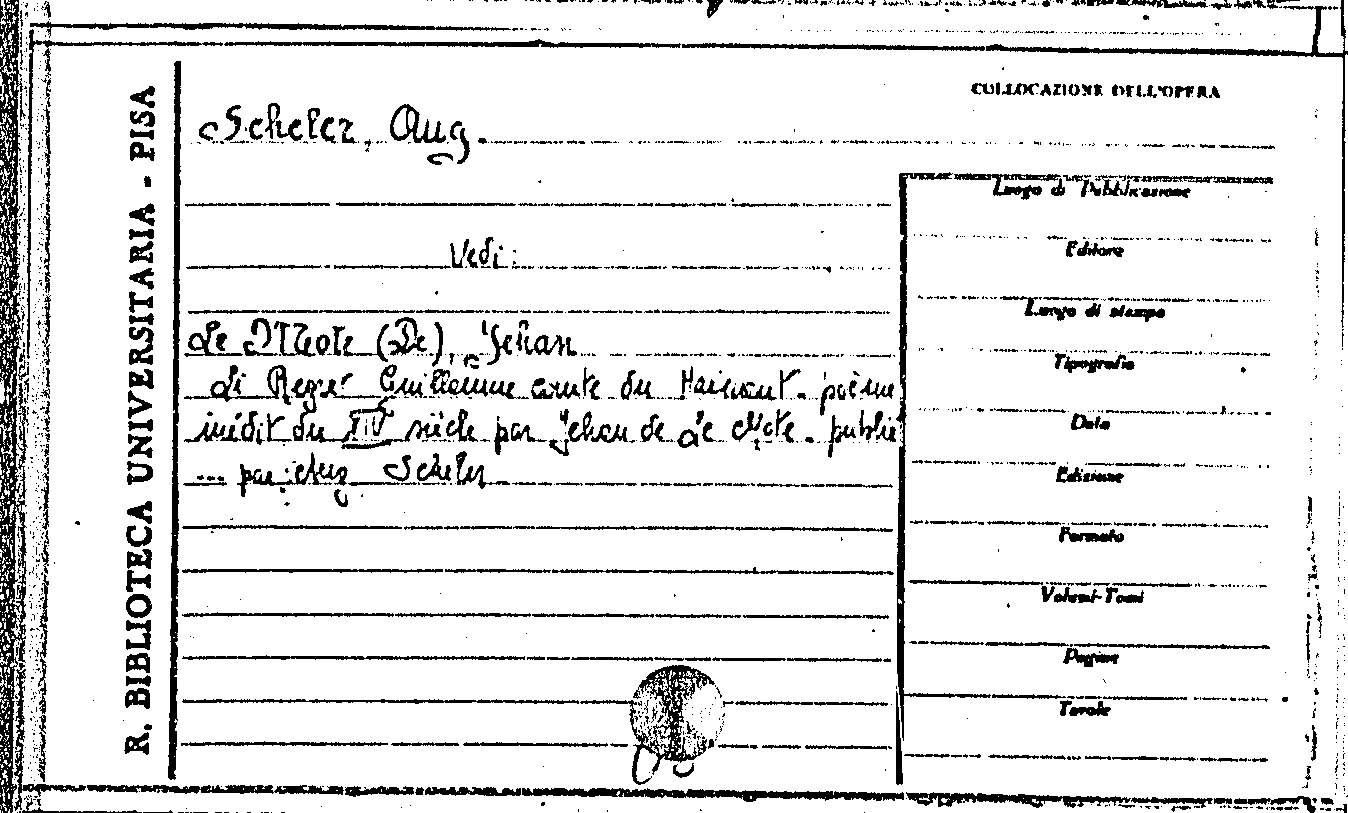 R. BIBLIOTECA UNIVERSITARIA - PISA
COLLOCAZIONE DELL'OPERA
Scheler, Aug.
Vedi:
Le Mote (De), Jehan
Li Regret Guillaume comte du Hainaut. poème
inédit du XIV siècle par Jehan de Le Mote. publié
... par Aug Scheler
Luogo di Pubblicazione
Editore
Luogo di stampa
Tipografia
Data
Edizione
Formato
Volumi-Tomi
Pagine
Tavole